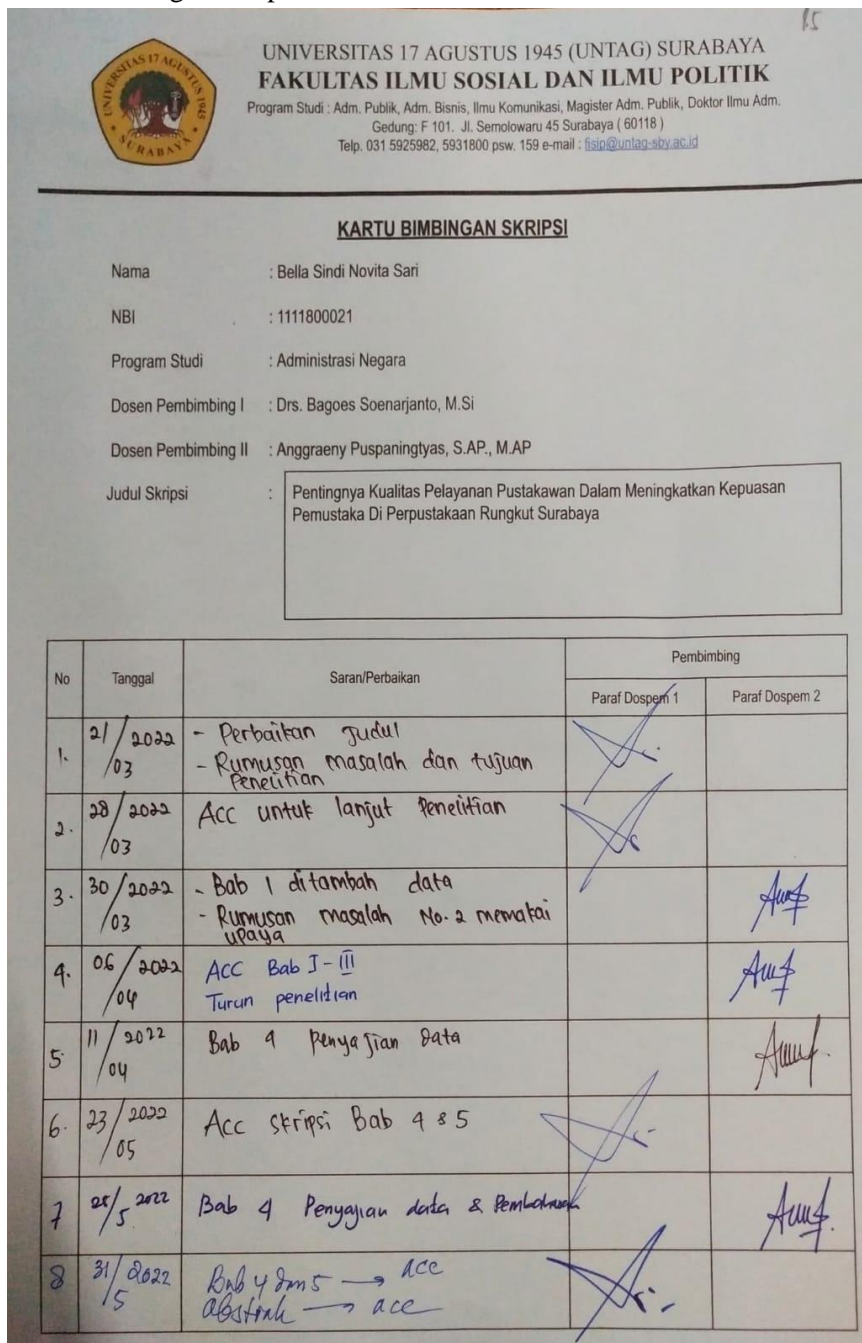 UNIVERSITAS 17 AGUSTUS 1945
SURABAYA
UNIVERSITAS 17 AGUSTUS 1945 (UNTAG) SURABAYA
FAKULTAS ILMU SOSIAL DAN ILMU POLITIK
Program Studi : Adm. Publik, Adm. Bisnis, Ilmu Komunikasi, Magister Adm. Publik, Doktor Ilmu Adm.
Gedung: F 101. Jl. Semolowaru 45 Surabaya ( 60118 )
Telp. 031 5925982, 5931800 psw. 159 e-mail : fisip@untag-sby.ac.id
KARTU BIMBINGAN SKRIPSI
Nama : Bella Sindi Novita Sari
NBI : 1111800021
Program Studi : Administrasi Negara
Dosen Pembimbing I : Drs. Bagoes Soenarjanto, M.Si
Dosen Pembimbing II : Anggraeny Puspaningtyas, S.AP., M.AP
Judul Skripsi : Pentingnya Kualitas Pelayanan Pustakawan Dalam Meningkatkan Kepuasan
Pemustaka Di Perpustakaan Rungkut Surabaya
No Tanggal Saran/Perbaikan Pembimbing
Paraf Dospem 1 Paraf Dospem 2
1. 21/03/2022 - Perbaikan Judul
- Rumusan masalah dan tujuan
Penelitian
2. 28/03/2022 Acc untuk lanjut Penelitian
3. 30/03/2022 - Bab 1 ditambah data
- Rumusan masalah No. 2 memakai
upaya
4. 06/04/2022 ACC Bab I - III
Turun penelitian
5. 11/04/2022 Bab 4 Penyajian Data
6. 23/05/2022 Acc skripsi Bab 4 & 5
7 25/5 2022 Bab 4 Penyajian data & Pembahasan
8 31/5 2022 Bab 4 dan 5 → acc
abstrak → acc